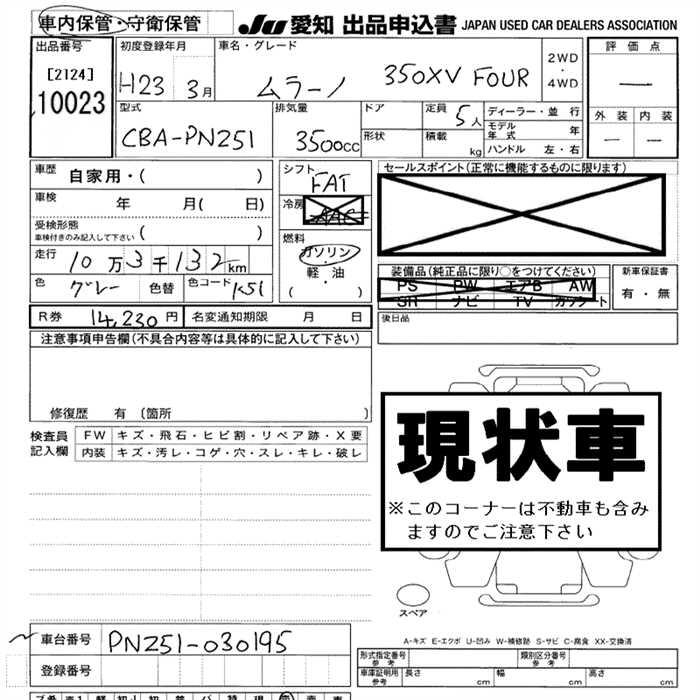 車内保管・守衛保管 JU 愛知 出品申込書 JAPAN USED CAR DEALERS ASSOCIATION
出品番号 [2124] 10023
初度登録年月 H23 3月
車名・グレード ムラーノ 350XV FOUR
2WD・4WD
評価点 —
外装 内装
— —
型式 CBA-PNZ51
排気量 3500cc
ドア
形状
定員 5人
積載 kg
ディーラー・並行
モデル年式 年
ハンドル 左・右
車歴 自家用・( )
車検 年 月( 日)
受検形態 車検付きのみ記入して下さい ( )
走行 10万3千132km
色 グレー 色替 色コード K51
シフト FAT
冷房 AAC
燃料 ガソリン・軽・油 ( )
セールスポイント(正常に機能するものに限ります)
装備品(純正品に限り○をつけてください)
PS PW エアB AW
SR ナビ TV カワシート
新車保証書 有・無
R券 14,230円 名変通知期限 月 日
後日品
注意事項申告欄(不具合内容等は具体的に記入して下さい)
修復歴 有 (箇所 )
検査員記入欄
FW キズ・飛石・ヒビ割・リペア跡・X要
内装 キズ・汚レ・コゲ・穴・スレ・キレ・破レ
現状車
※このコーナーは不動車も含み
ますのでご注意下さい
スペア
A-キズ E-エクボ U-凹み W-補修跡 S-サビ C-腐食 XX-交換済
車台番号 PNZ51-030195
登録番号
形式指定番号 参考 類別区分番号 参考
車庫証明用 参考 長さ cm 幅 cm 高さ cm